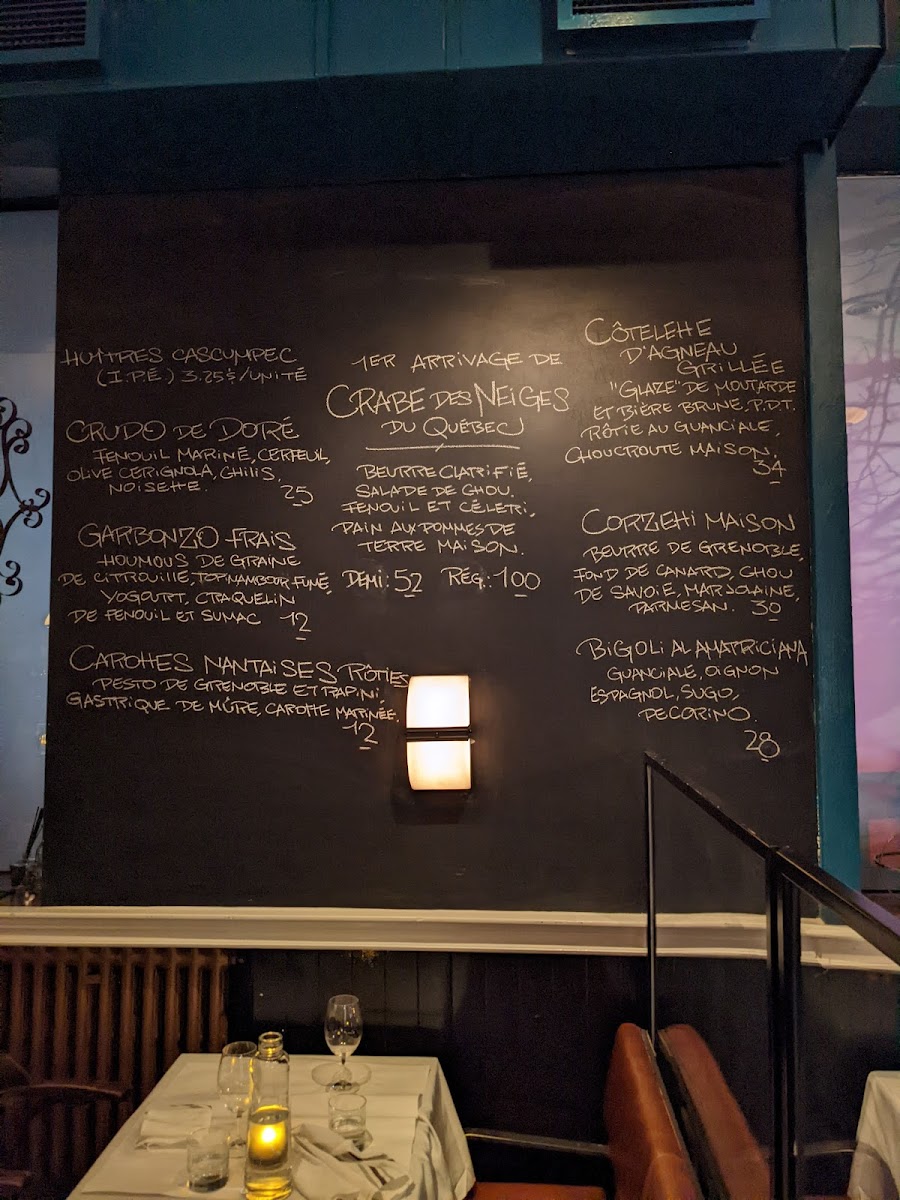 HUÎTRES CASCUMPEC
(I.P.E.) 3.25$/UNITÉ
CRUDO DE DORÉ
FENOUIL MARINÉ, CERFEUIL,
OLIVE CERIGNOLA, CHILIS,
NOISETTE.
25
GARBONZO FRAIS
HOUMOUS DE GRAINE
DE CITROUILLE, TOPINAMBOUR FUMÉ,
YOGOURT, CRAQUELIN
DE FENOUIL ET SUMAC 12
CAROTTES NANTAISES RÔTIES
PESTO DE GRENOBLE ET RAPINI,
GASTRIQUE DE MÛRE, CAROTTE MARINÉE.
12
1ER ARRIVAGE DE
CRABE DES NEIGES
DU QUÉBEC
BEURRE CLARIFIÉ,
SALADE DE CHOU,
FENOUIL ET CÉLERI,
PAIN AUX POMMES DE
TERRE MAISON.
DEMI: 52 RÉG.: 100
CÔTELETTE
D'AGNEAU
GRILLÉE
"GLAZE" DE MOUTARDE
ET BIÈRE BRUNE, P.D.T.
RÔTIE AU GUANCIALE,
CHOUCROUTE MAISON.
34
CORZETTI MAISON
BEURRE DE GRENOBLE,
FOND DE CANARD, CHOU
DE SAVOIE, MARJOLAINE,
PARMESAN. 30
BIGOLI AL AMATRICIANA
GUANCIALE, OIGNON
ESPAGNOL, SUGO,
PECORINO.
28